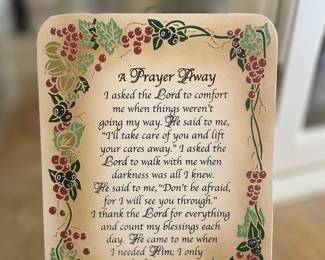 A Prayer Away
I asked the Lord to comfort
me when things weren't
going my way. He said to me,
"I'll take care of you and lift
your cares away." I asked the
Lord to walk with me when
darkness was all I knew.
He said to me, "Don't be afraid,
for I will see you through."
I thank the Lord for everything
and count my blessings each
day. He came to me when
I needed Him; I only